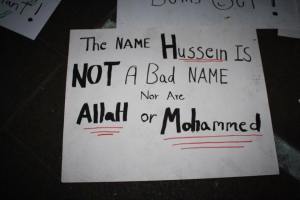 The NAME Hussein Is
NOT A Bad NAME
Nor Are
AllaH or Mohammed